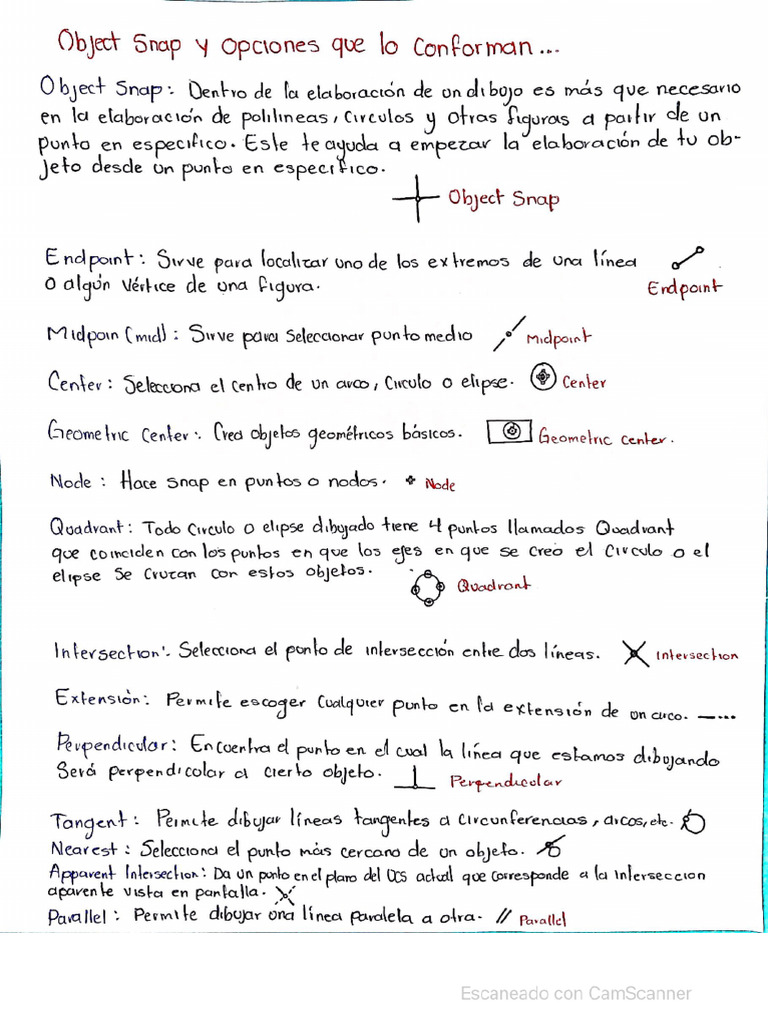 Object Snap y opciones que lo conforman...
Object Snap: Dentro de la elaboración de un dibujo es más que necesario
en la elaboración de polilineas, circulos y otras figuras a partir de un
punto en especifico. Este te ayuda a empezar la elaboración de tu ob-
jeto desde un punto en especifico.
Object Snap
Endpoint: Sirve para localizar uno de los extremos de una línea
o algún vértice de una figura.
Endpoint
Midpoin (mid): Sirve para seleccionar punto medio
Midpoint
Center: Selecciona el centro de un arco, circulo o elipse.
Center
Geometric Center: Crea objetos geométricos básicos.
Geometric center.
Node: Hace snap en puntos o nodos.
Node
Quadrant: Todo circulo o elipse dibujado tiene 4 puntos llamados Quadrant
que coinciden con los puntos en que los ejes en que se creo el circulo o el
elipse se cruzan con estos objetos.
Quadrant
Intersection: Selecciona el punto de intersección entre dos líneas.
Intersection
Extensión: Permite escoger cualquier punto en la extensión de un arco.
Perpendicular: Encuentra el punto en el cual la línea que estamos dibujando
será perpendicolar a cierto objeto.
Perpendicolar
Tangent: Permite dibujar líneas tangentes a circunferencias, arcos, etc.
Nearest: Selecciona el punto más cercano de un objeto.
Apparent Intersection: Da un punto en el plano del OCS actual que corresponde a la interseccion
aparente vista en pantalla.
Parallel: Permite dibujar una línea paralela a otra.
Parallel
Escaneado con CamScanner